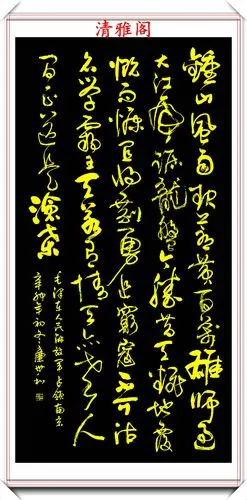 清雅阁
鍾山風雨起蒼黃百万雄师过
大江虎踞龍盤今勝昔天翻地覆
慨而慷宜将剩勇追窮寇不可沽
名学霸王天若有情天亦老人
间正道是滄桑
毛泽东人民解放军占领南京
辛卯年初冬